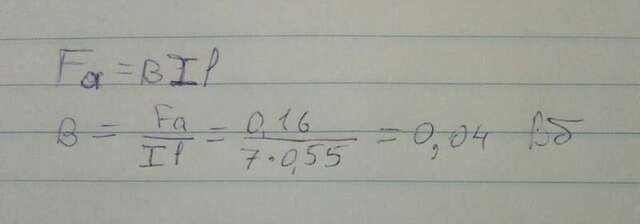 Fa = BIl
B = Fa/Il = 0,16/7·0,55 = 0,04 Вб